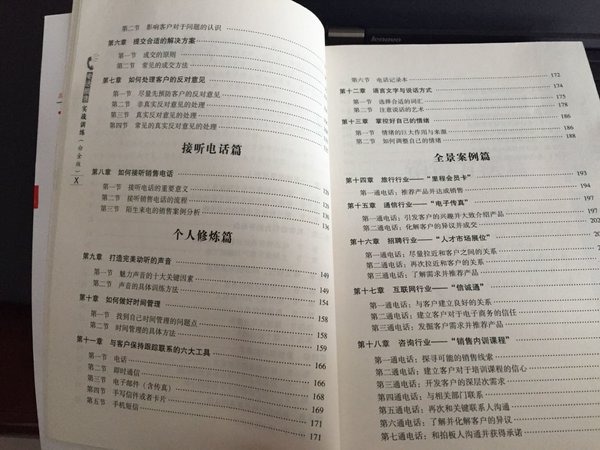 实战训练（白金版）
X
第二节 影响客户对于问题的认识
第六章 提交合适的解决方案
第一节 成交的原则
第二节 常见的成交方法
第七章 如何处理客户的反对意见
第一节 尽量先预防客户的反对意见
第二节 非真实反对意见的处理
第三节 真实反对意见的处理
第四节 常见的真实反对意见的处理
接听电话篇
第八章 如何接听销售电话
第一节 接听电话的重要意义
第二节 接听销售电话的流程
第三节 陌生来电的销售案例分析
个人修炼篇
第九章 打造完美动听的声音 149
第一节 魅力声音的十大关键因素 149
第二节 声音的具体训练方法 154
第十章 如何做好时间管理 158
第一节 找到自己时间管理的问题点 158
第二节 时间管理的具体方法 159
第十一章 与客户保持跟踪联系的六大工具 166
第一节 电话 166
第二节 即时通信 168
第三节 电子邮件（含传真） 168
第四节 手写信件或者卡片 169
第五节 手机短信 171
171
第六节 电话记录本 172
第十二章 语言文字与说话方式 174
第一节 选择合适的词汇 175
第二节 注意说话的艺术 178
第十三章 掌控好自己的情绪 185
第一节 情绪的巨大作用与来源 186
第二节 如何调整自己的情绪 188
全景案例篇
第十四章 旅行行业——“里程会员卡” 193
第一通电话：推荐产品并达成销售 194
第十五章 通信行业——“电子传真”
第一通电话：引发客户的兴趣并大致介绍产品
第二通电话：化解客户的异议并成交 202
第十六章 招聘行业——“人才市场展位”
第一通电话：尽量拉近和客户之间的关系
第二通电话：再次拉近和客户的关系
第三通电话：了解需求并推荐产品
第十七章 互联网行业——“信诚通”
第一通电话：与客户建立良好的关系
第二通电话：建立客户对于电子商务的信任
第三通电话：发掘客户需求并推荐产品
第十八章 咨询行业——“销售内训课程”
第一通电话：探寻可能的销售线索
第二通电话：建立客户对于培训课程的信心
第三通电话：开发客户的深层次需求
第四通电话：与相关部门联系
第五通电话：再次和关键联系人沟通
第六通电话：了解并化解客户的异议
第七通电话：和拍板人沟通并获得承诺
lenovo